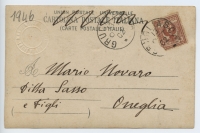 1946
UNION POSTALE UNIVERSELLE
CARTOLINA POSTALE ITALIANA
(CARTE POSTALE D'ITALIE)
De Mario Novaro
Ditta Sasso
e Figli
Oneglia